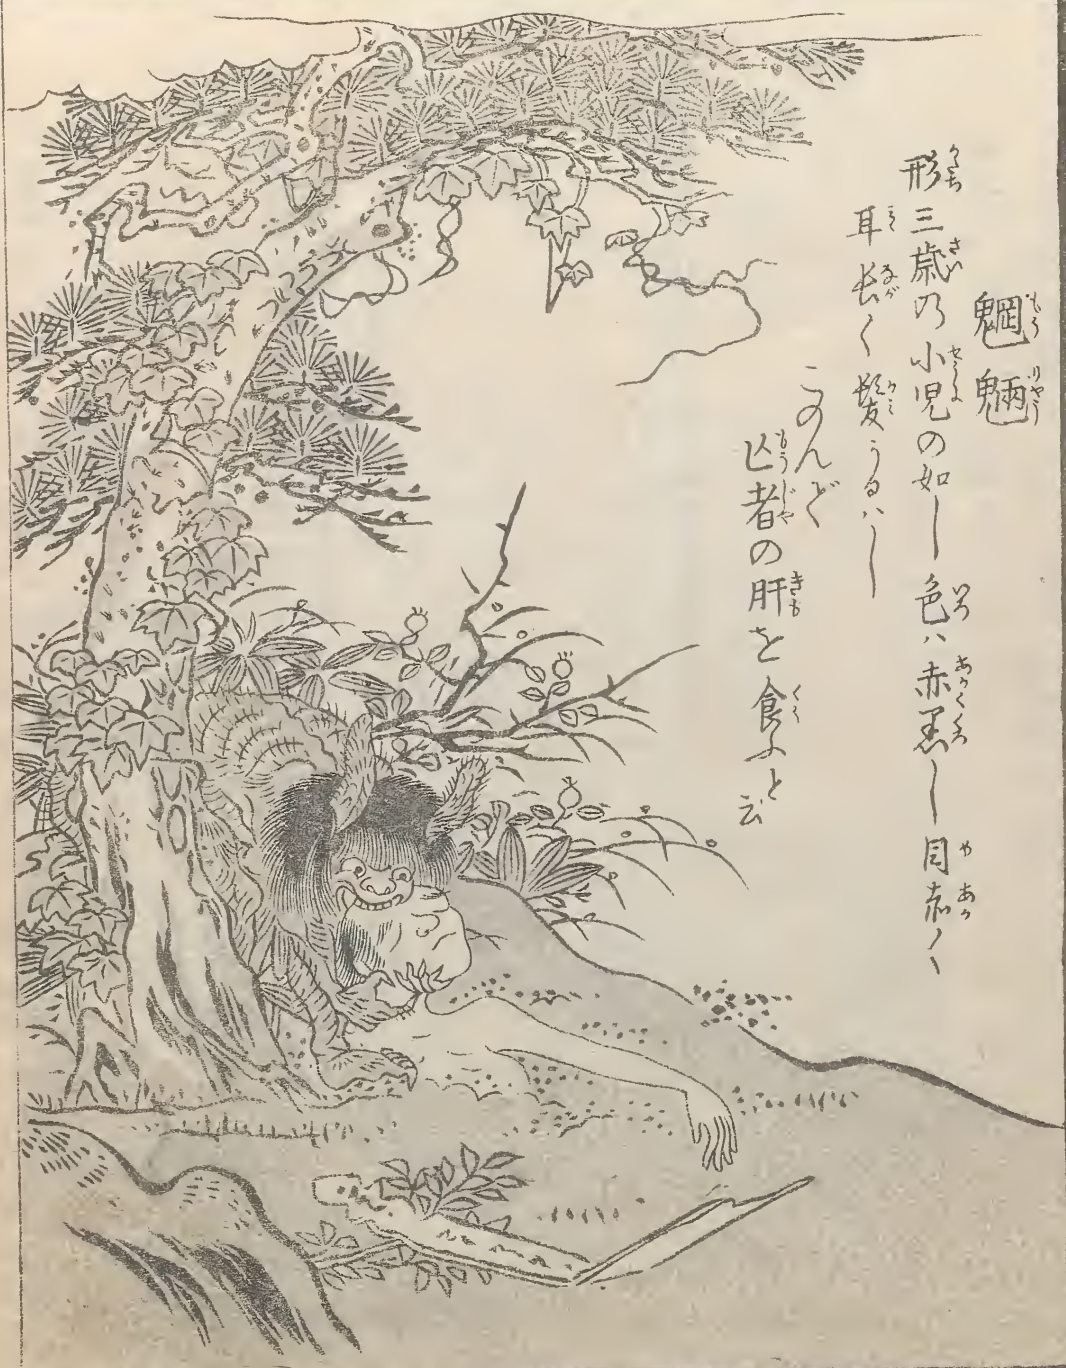 魍魎
形三歳の小児の如し色ハ赤黒し目赤く
耳長く髪うるハし
このんで
亡者の肝を食ふと云